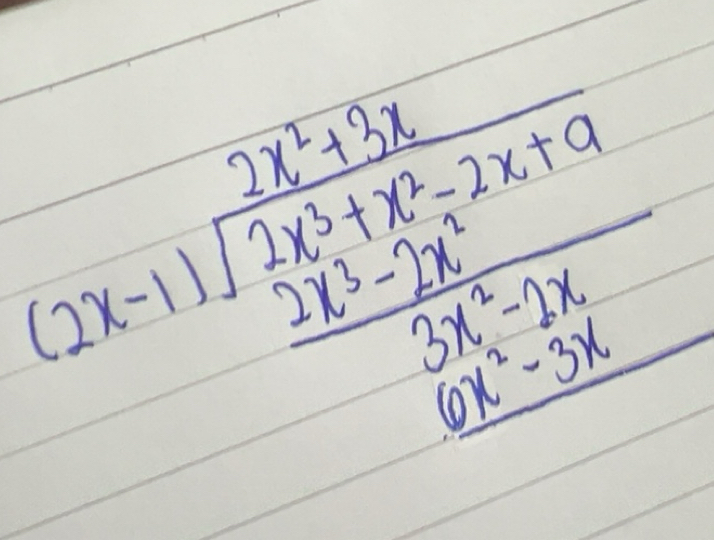 2x² + 3x
(2x-1) √2x³ + x² - 2x + a
2x³ - 2x²
3x² - 2x
6x² - 3x